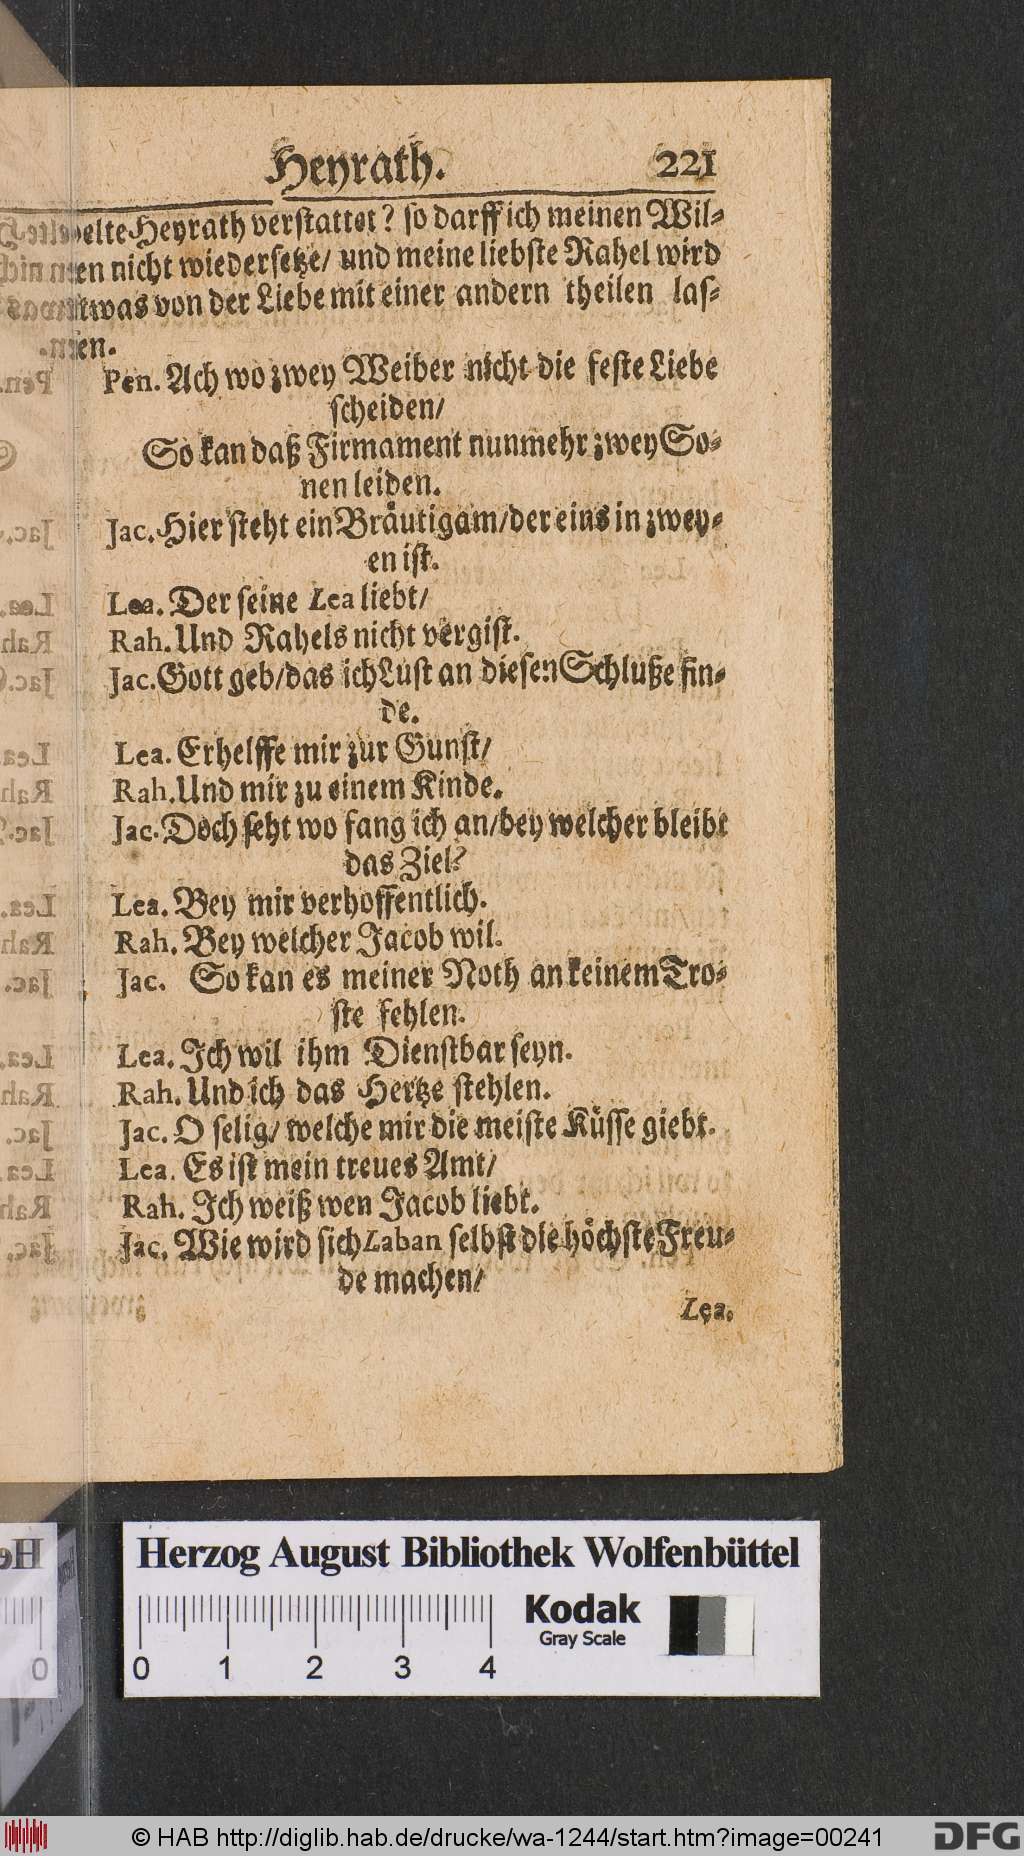 Heyrath. 221
pelte Heyrath verstattet? so darff ich meinen Wil-
en nicht wiedersetze/ und meine liebste Rahel wird
twas von der Liebe mit einer andern theilen las-
en.
Pen. Ach wo zwey Weiber nicht die feste Liebe
scheiden/
So kan daß Firmament nunmehr zwey So-
nen leiden.
Jac. Hier steht ein Bräutigam/ der eins in zwey-
en ist.
Lea. Der seine Lea liebt/
Rah. Und Rahels nicht vergist.
Jac. Gott geb/ das ich Lust an diesen Schluße fin-
de.
Lea. Er helffe mir zur Gunst/
Rah. Und mir zu einem Kinde.
Jac. Doch seht wo fang ich an/ bey welcher bleibt
das Ziel?
Lea. Bey mir verhoffentlich.
Rah. Bey welcher Jacob wil.
Jac. So kan es meiner Noth an keinem Tro-
ste fehlen.
Lea. Ich wil ihm Dienstbar seyn.
Rah. Und ich das Hertze stehlen.
Jac. O selig/ welche mir die meiste Küsse giebt.
Lea. Es ist mein treues Amt/
Rah. Ich weiß wen Jacob liebt.
Jac. Wie wird sich Laban selbst die höchste Freu-
de machen/
Lea.
Herzog August Bibliothek Wolfenbüttel
Kodak
Gray Scale
0 1 2 3 4
© HAB http://diglib.hab.de/drucke/wa-1244/start.htm?image=00241
DFG